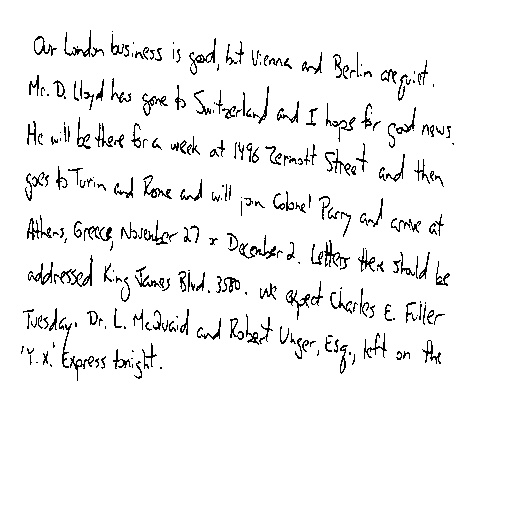 Our London business is good, but Vienna and Berlin are quiet.
Mr. D. Lloyd has gone to Switzerland and I hope for good news.
He will be there for a week at 1496 Zermott Street and then
goes to Turin and Rome and will join Colonel Parry and arrive at
Athens, Greece, November 27 or December 2. Letters there should be
addressed King James Blvd. 3580. We expect Charles E. Fuller
Tuesday. Dr. L. McQuaid and Robert Unger, Esq., left on the
'Y.X.' Express tonight.